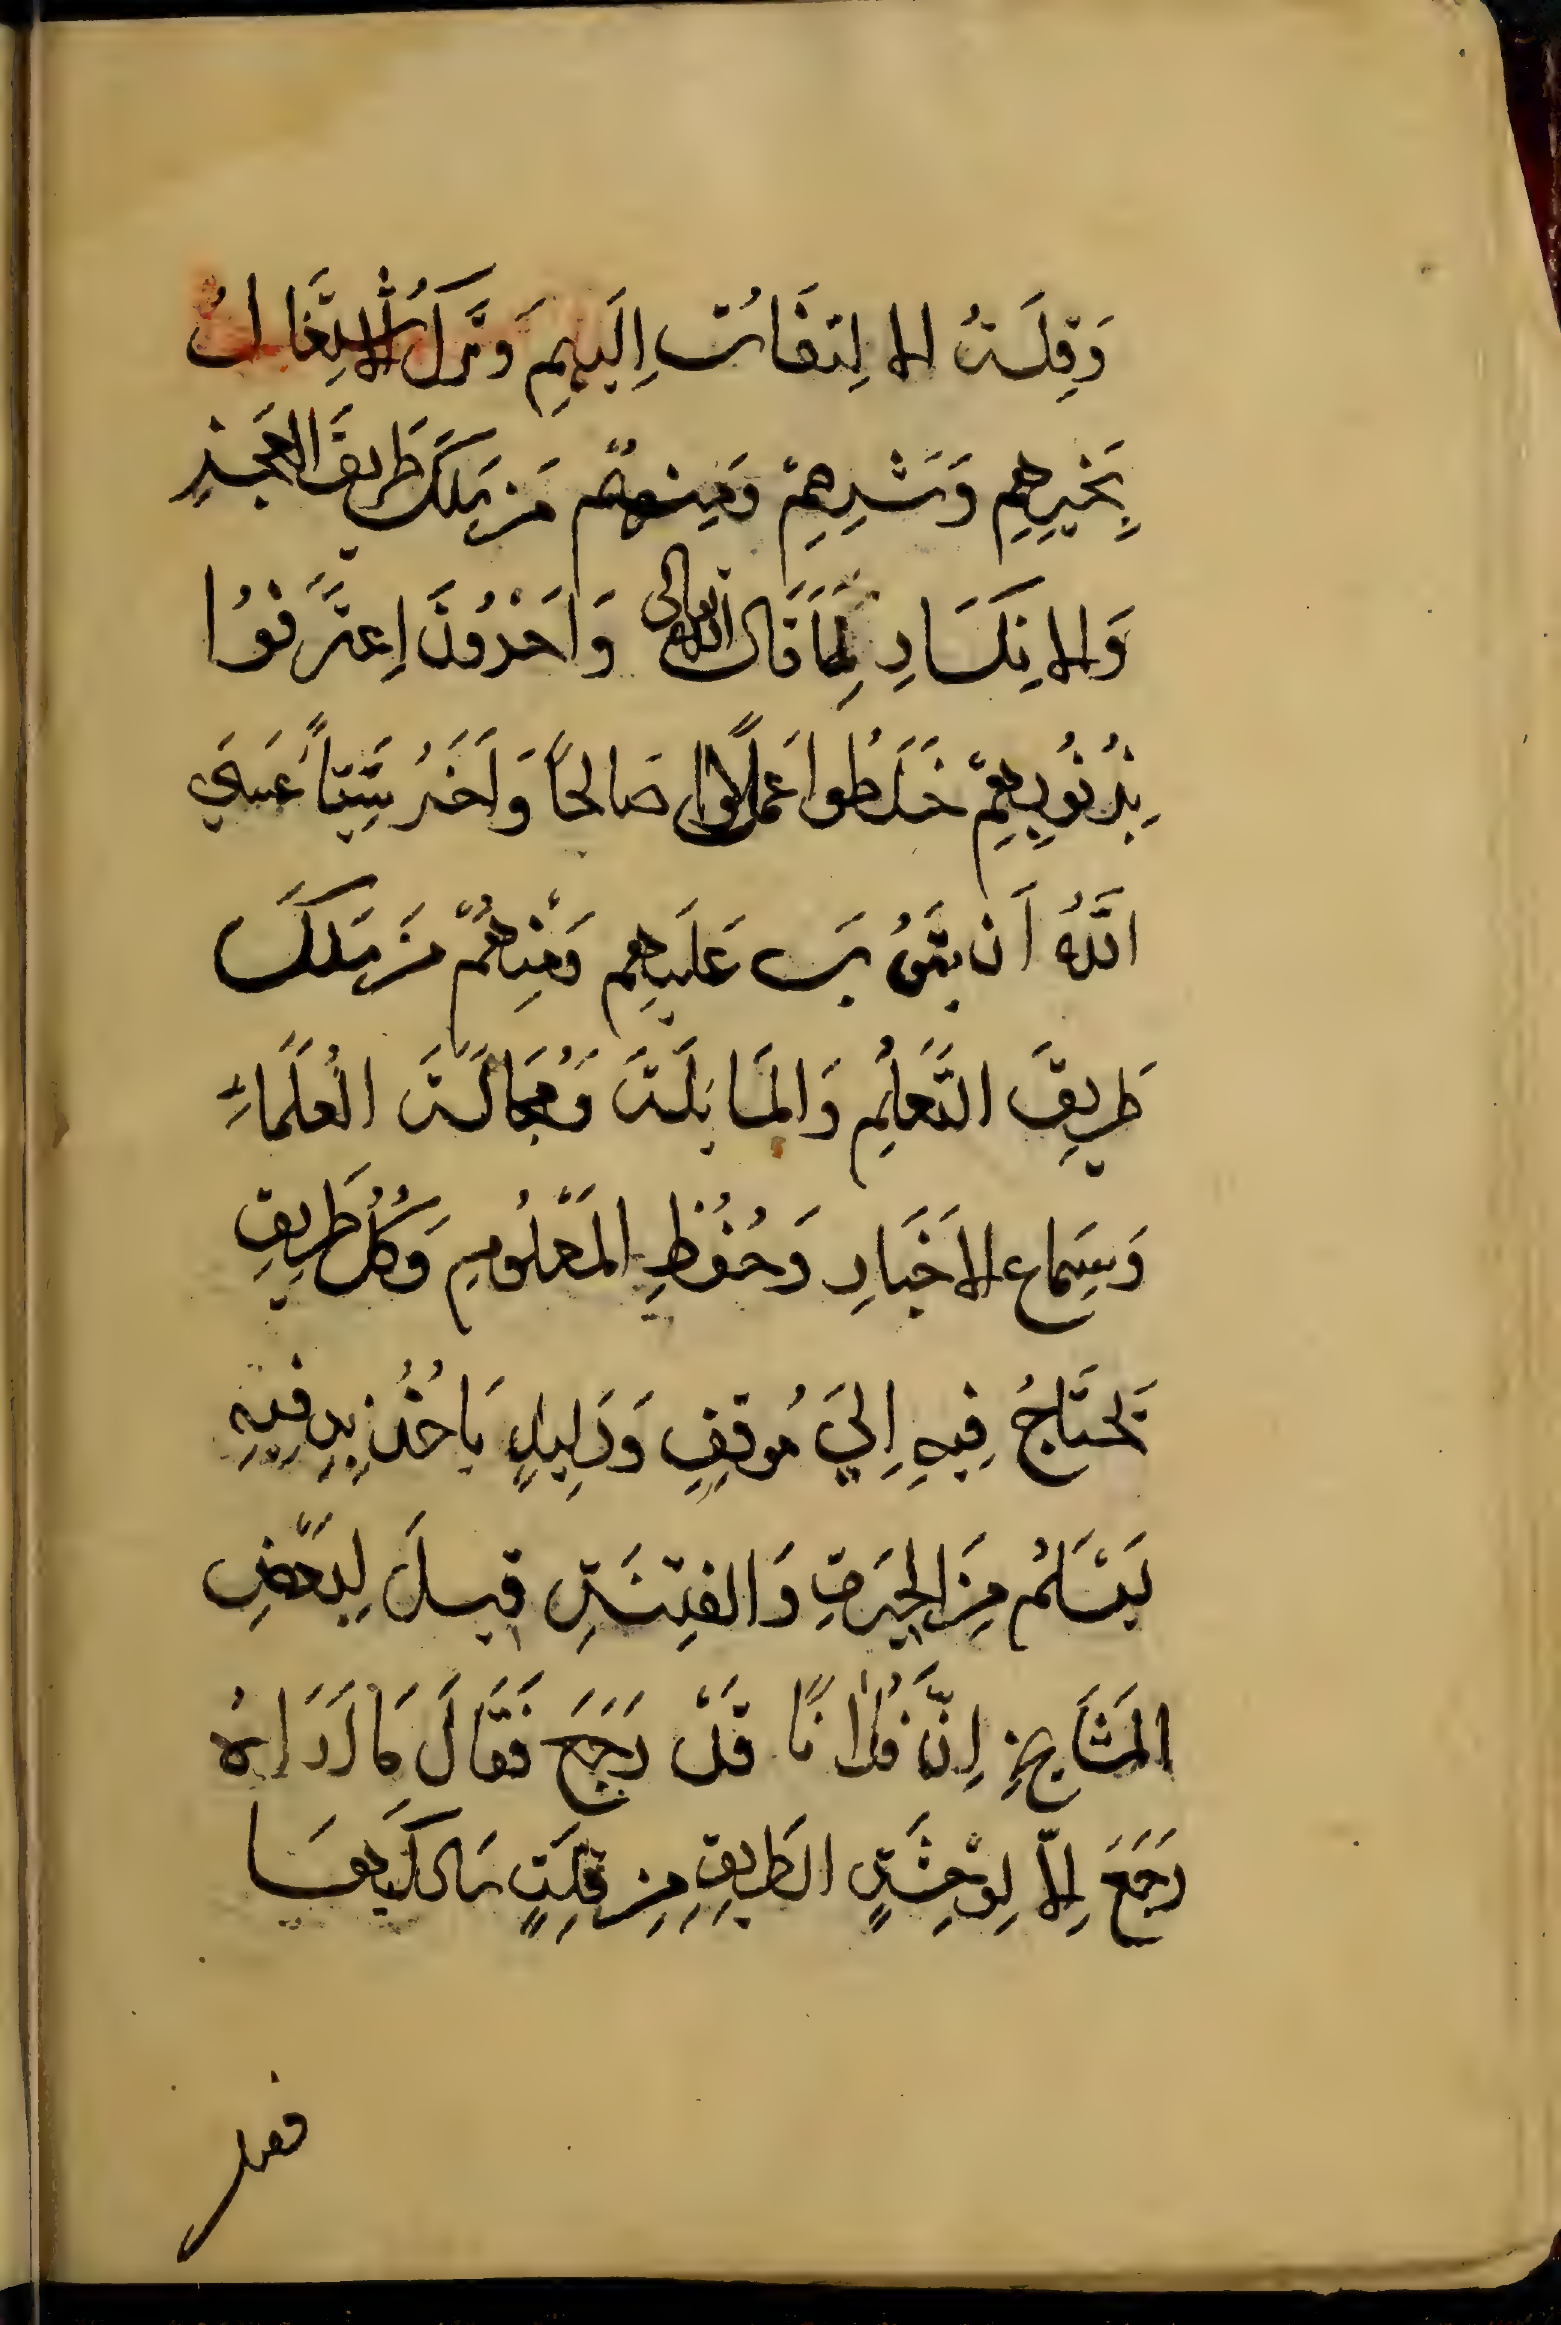 وَقِلَتُ الالِتفَاتِ اِلَيهِمِ وَتَركُ الاِشتِغَالُ
بِخَيرِهِمِ وَشَرِهِمِ وَمِنهُم مَن سَلَكَ طَرِيقَ العَجزِ
وَالاِنِكَسَارِ لِمَا قَال الله تعالى وَاَخَرُونَ اِعتَرَفوُا
بِذُنُوبِهِم خَلَطُوا عَمَلاً صَالِحاً وَاَخَرُ سَيِّئاً عَسَي
اللَّهُ اَن يَتوُبَ عَلَيهِم وَمِنهُم مَن سَلَكَ
طَرِيقَ التَّعَلُمِ وَالمَسايلَتَ وَمُجَالَسَتَ العُلَمَاءِ
وَسِمَاع الاَخبَارِ وَحُفُظِ المَعلُومِ وَكُلُ طَرِيقِ
يَحتَاجُ فِيهِ اِليَ مُوقِفٍ وَدَلِيلٍ يَاخُذُ بِيدِ فيهِ
يَسَلمُ مِنَ الحِيرَتِ وَالفِتنَتِ قيلَ لِبَعضِ
المَشَايخِ اِنَّ فُلاناً قَد رَجَعَ فَقَالَ مَا اَرَاهُ
رَجَعَ اِلاّ لِوَحِشَتٍ الطَرِيقِ مِن قِلَتٍ سَالكَيهَا
فقد